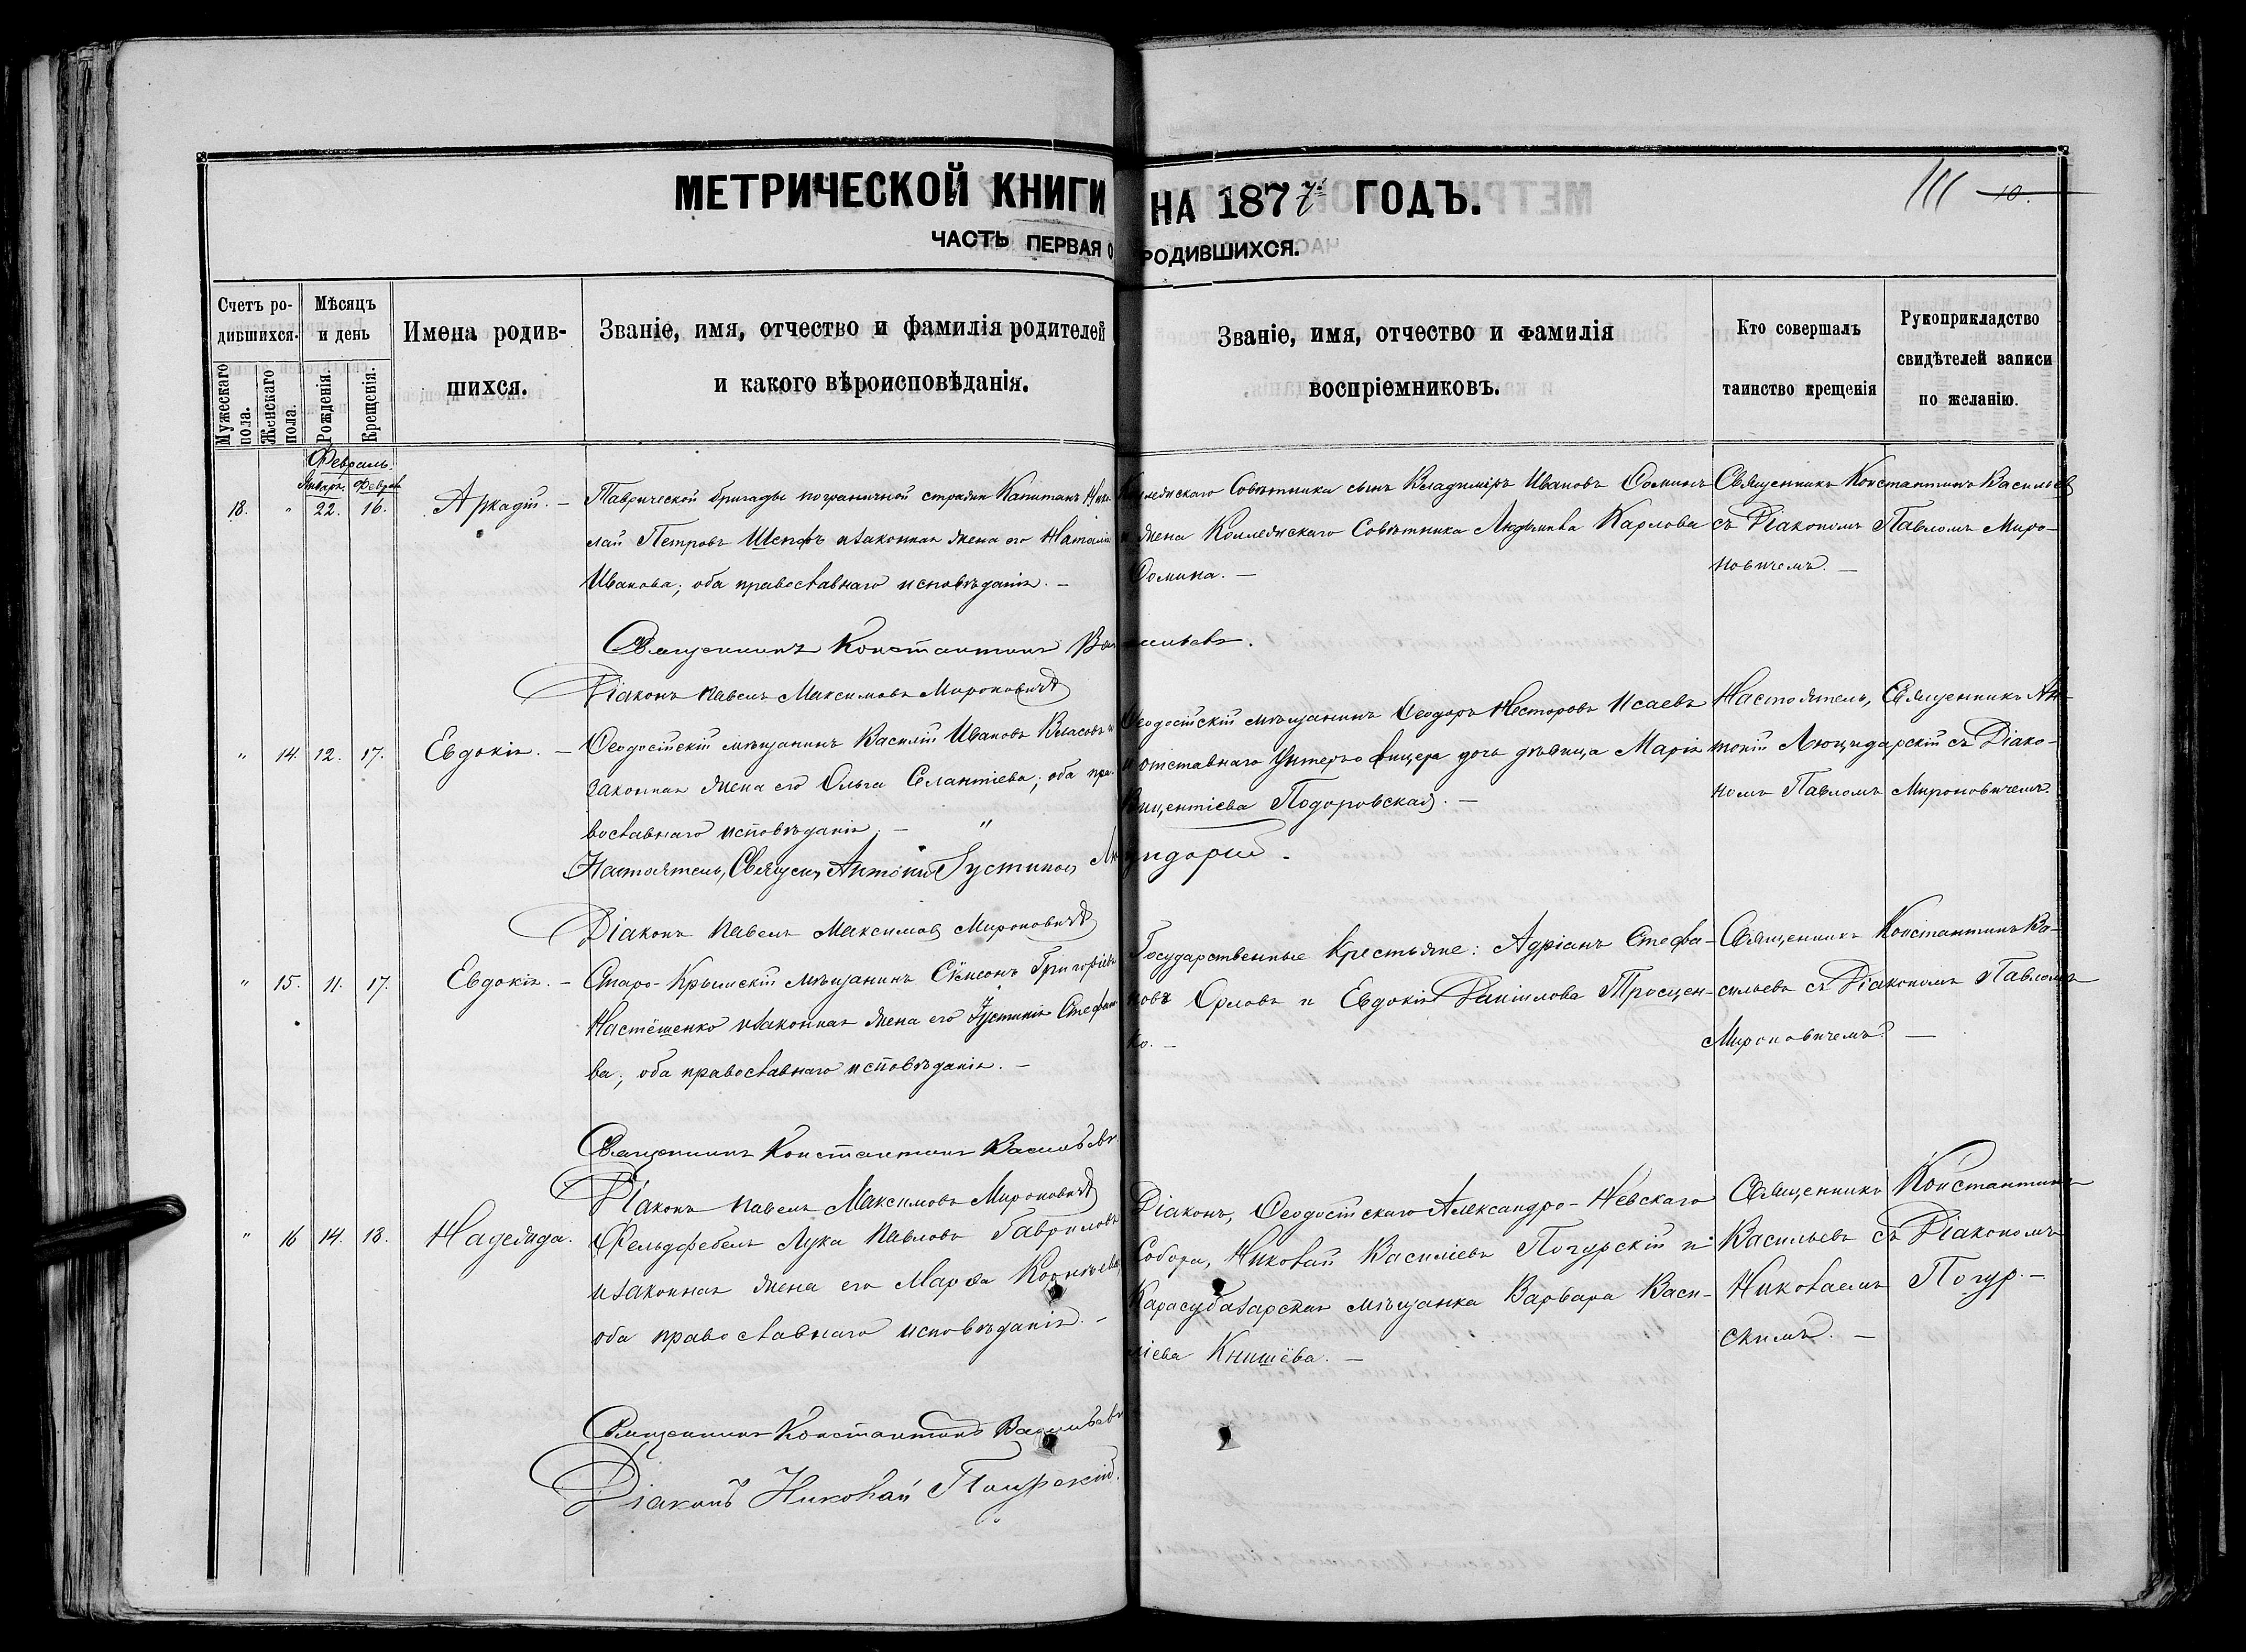 МЕТРИЧЕСКОЙ КНИГИ НА 1877й ГОДЪ.
111 10.
ЧАСТЬ ПЕРВАЯ О РОДИВШИХСЯ.
Счетъ ро-
дившихся.
Мужескаго пола.
Женскаго пола.
Мѣсяцъ
и день
Рожденія.
Крещенія.
Имена родив-
шихся.
Званіе, имя, отчество и фамилія родителей
и какого вѣроисповѣданія.
Званіе, имя, отчество и фамилія
воспріемниковъ.
Кто совершалъ
таинство крещенія
Рукоприкладство
свидѣтелей записи
по желанію.
Февраль.
Январь. Февраль
18. " 22. 16. Аркадій. —
Таврической бригады пограничной стражи Капитанъ Нико-
лай Петровъ Шенфъ и законная жена его Наталія
Иванова; оба православнаго исповѣданія. —
Коллежскаго Совѣтника сынъ Владиміръ Ивановъ Ѳоминъ
и жена Коллежскаго Совѣтника Людмила Карлова
Ѳомина. —
Священникъ Константинъ Васильев
съ Діакономъ Павломъ Миро-
новичемъ. —
Священникъ Константинъ Васильевъ.
Діаконъ Павелъ Максимовъ Мироновичъ
" 14. 12. 17. Евдокія. —
Ѳеодосійскій мѣщанинъ Василій Ивановъ Власовъ и
законная жена его Ольга Селантіева; оба пра-
вославнаго исповѣданія. — "
Ѳеодосійскій мѣщанинъ Ѳеодоръ Несторовъ Исаевъ
и отставнаго Унтеръ офицера дочь дѣвица Марія
Викентіева Подоровская. —
Настоятель, Священникъ Ан-
тоній Люцидарскій съ Діако-
номъ Павломъ Мироновичемъ.
Настоятель, Священ. Антоній Іустиновъ
Діаконъ Павелъ Максимовъ Мироновичъ
" 15. 11. 17. Евдокія. —
Старо-Крымскій мѣщанинъ Сѵмеонъ Григоріевъ
Настёшенко и законная жена его Іустинія Стефано-
ва; оба православнаго исповѣданія. —
Государственные Крестьяне: Адріанъ Стефа-
новъ Орловъ и Евдокія Даніилова Тросцен-
ко. —
Священникъ Константинъ Ва-
сильевъ съ Діакономъ Павломъ
Мироновичемъ. —
Священникъ Константинъ Васильевъ
Діаконъ Павелъ Максимовъ Мироновичъ
" 16 14. 18. Надежда.
Фельдфебель Лука Павловъ Гавриловъ
и законная жена его Марѳа
оба православнаго исповѣданія. —
Діаконъ, Ѳеодосійскаго Александро-Невскаго
Собора, Николай Василіевъ Погурскій и
Карасубазарская мѣщанка Варвара Васи-
ліева Книшёва. —
Священникъ Константинъ
Васильевъ съ Діакономъ
Николаемъ Погур. —
скимъ. —
Священникъ Константинъ Васильевъ
Діаконъ Николай Погурскій.